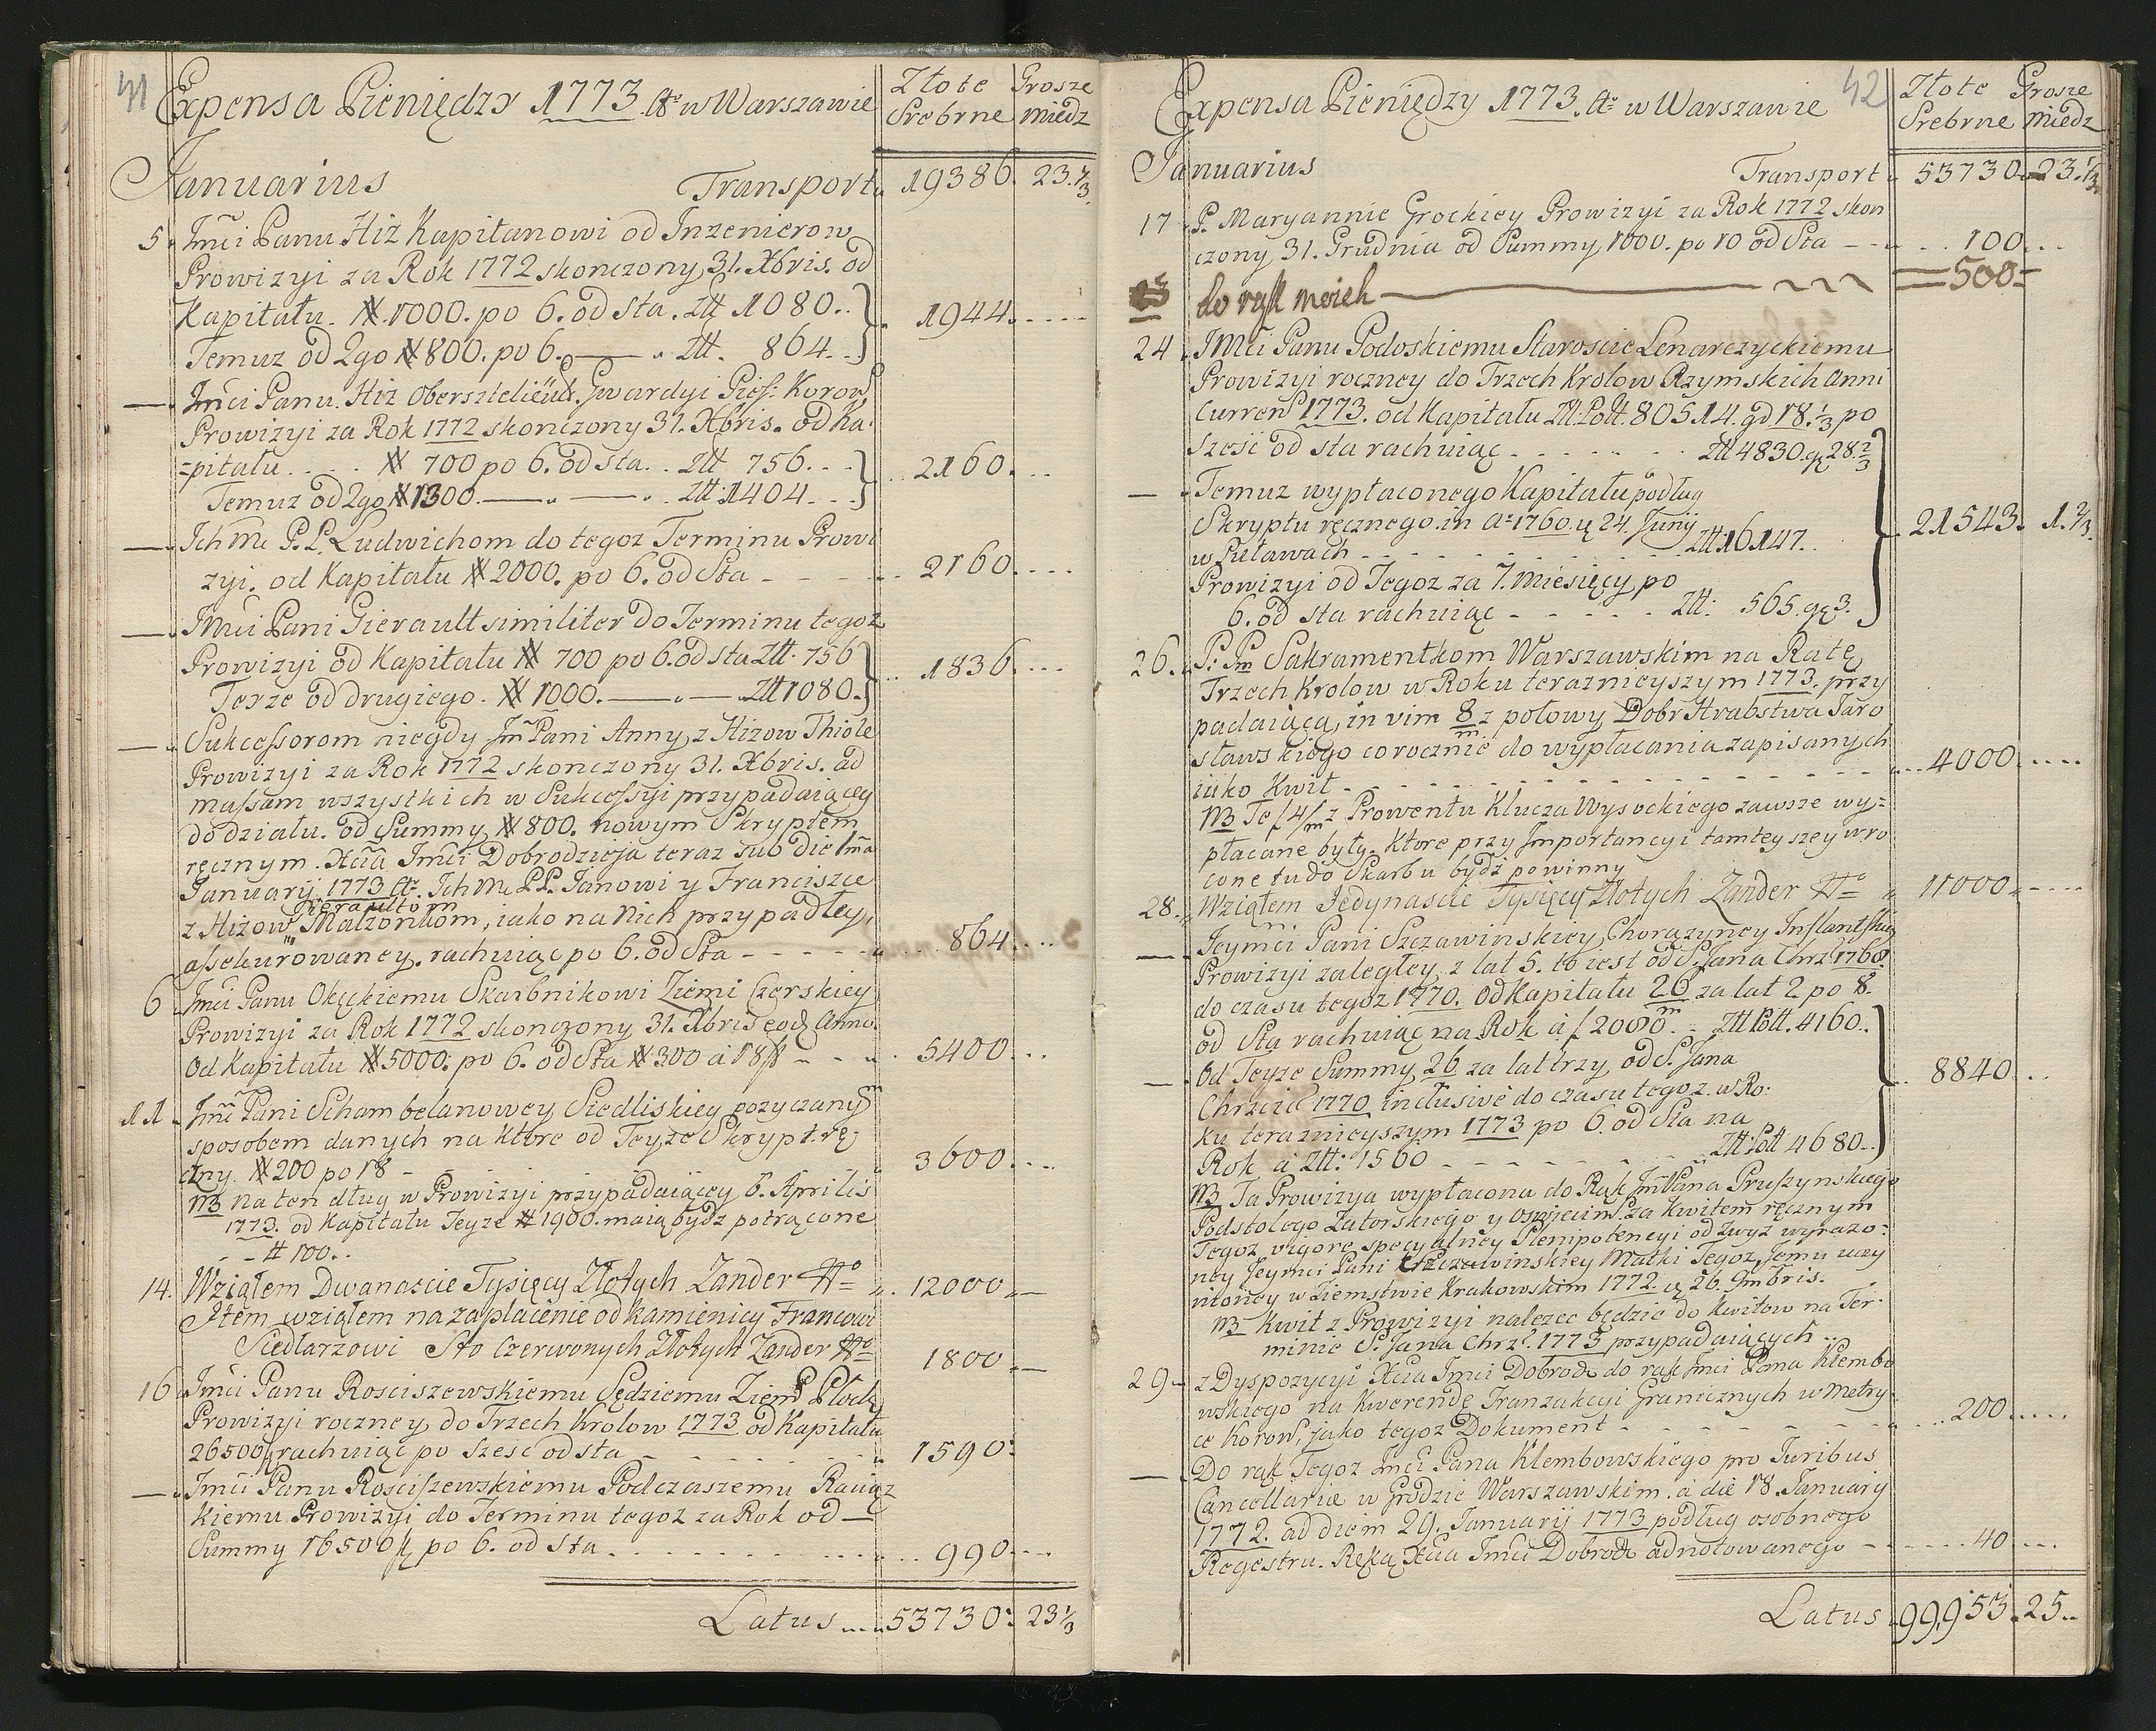 41
Expensa Pieniędzy 1773 Ao w Warszawie
Złote Grosze
Srebrne miedz
Januarius Transport 19386. 23. 1/3
5. Jmci Panu Hiż Kapitanowi od Inzenierow
Prowizyi za Rok 1772 skonczony 31. Xbris. od
Kapitału. # 1000. po 6. od sta. Złł 1080.. 1944.
Temuz od 2go # 800. po 6. — Złł. 864..
—. Jmci Panu. Hiz Gwardyi Korow
Prowizyi za Rok 1772 skonczony 31. Xbris. od Ka-
=pitału.... # 700 po 6. od sta.. Złł 756... 2160...
Temuz od 2go # 1300. — „ — „ Złł: 1404...
—. Ich Mc P.P. Ludwichom do tegoz Terminu Prowi
zyi. od Kapitału # 2000. po 6. od Sta - - - 2160....
—. Jmci Pani Gierault similiter do Terminu tegoz
Prowizyi od Kapitału # 700 po 6. od sta Złł. 756 1836...
Teyze od drugiego. # 1000. — „ — Złł 1080.
—. Sukcessorom niegdy Jm Pani Anny z Hizow Thiole
Prowizyi za Rok 1772 skonczony 31. Xbris. ad
massam wszystkich w Sukcessyi przypadaiącey
do działu. od Summy # 800. nowym Skryptem
ręcznym. Xcia Jmci Dobrodzieja teraz sub die 1ma
Januarij 1773 Ao. Ich Mc PP. Janowi y Franciszce
Geraultom
z Hizow Małzonkom, iako na Nich przypadłey
assekurowaney. rachuiąc po 6. od Sta - - - - - 864....
6 Jmci Panu Okęckiemu Skarbnikowi Ziemi Czerskiey
Prowizyi za Rok 1772 skonczony 31. Xbris eod Anno.
Od Kapitału # 5000: po 6. od Sta # 300 a 18 ƒ - - 5400...
11. Jmci Pani Schambelanowey Siedliskiey pozyczanym
sposobem danych na ktore od Teyze Skrypt rę-
czny. # 200 po 18 - - 3600....
NB na ten dług w Prowizyi przypadaiącey 6. Aprilis
1773. od Kapitału Teyze # 1900. maią bydz potrącone
- - # 100..
14. Wziąłem Dwanascie Tysięcy Złotych Zander 12000 „—
Item wziąłem na zapłacenie od kamienicy Francowi
Siedlarzowi Sto Czerwonych Złotych Zander 1800 „—
16 Jmci Panu Rosciszewskiemu Sędziemu Ziem Płock
Prowizyi roczney do Trzech Krolow 1773 od Kapitału
26500 ƒ rachuiąc po szesc od sta - - - - - 1590:
—. Jmci Panu Rosciszewskiemu Podczaszemu Raciąz
kiemu Prowizyi do Terminu tegoz za Rok od —
Summy 16500 ƒ po 6. od Sta . . . . . . . . . . 990....
Latus ..... 53730: 23 1/3
42
Expensa Pieniędzy 1773. Ao w Warszawie
Złote Grosze
Srebrne miedz
Januarius Transport 53730. 23. 1/3
17. P. Maryannie Grockiey Prowizyi za Rok 1772 skon
czony 31. Grudnia od Summy 1000. po 10 od Sta - - . . 100...
23 do rąk moich — = 500 =
24. JMci Panu Podoskiemu Staroscie
Prowizyi roczney do Trzech Krolow Rzymskich Anni
Curren 1773. od Kapitału Złł. Poll. 80514. gd 18. 1/3 po
szesc od sta rachuiąc - - - - - - Złł 4830. gr 28. 2/3
—. Temuz wypłaconego Kapitału podług
Skryptu ręcznego in Ao 1760. d 24 Junij 21543. 1. 2/3
w Puławach - - - - - - - - - Złł 16147..
Prowizyi od Tegoz za 7. miesięcy po
6. od sta rachuiąc - - - - - Złł: 565 gr 3.
26. P: P Sakramentkom Warszawskim na Ratę
Trzech Krolow w Roku teraznieyszym 1773. przy
padaiącą, in vim 8 m z połowy Dobr Hrabstwa Jaro
sławskiego corocznie do wypłacania zapisanych
iako Kwit - - - - - - - - - - - - - ....4000.....
NB Te ƒ 4/m z Prowentu Klucza Wysockiego zawsze wy=
płacane były. Ktore przy Importancyi tamteyszey wro
cone tu do Skarbu bydź powinny
28. Wziąłem Jedynascie Tysięcy Złotych Zander 11000.....
—. Jeymci Pani Szczawinskiey Chorązyney Inflantskiey
Prowizyi zaległey z lat 5. to iest od S. Jana Chrz 1768.
do czasu tegoz 1770. Od Kapitału 26 m za lat 2 po 8.
od Sta rachuiąc na Rok a ƒ 2080. - Złł Poll. 4160..
—. Od Teyze Summy 26 za lat trzy, od S. Jana 8840...
Chrzcic 1770 inclusive do czasu tegoz w Ro:
ku teraznieyszym 1773 po 6. od Sta na
Rok a Złł: 1560 - - - - - - - - Złł: Poll 4680..
NB Ta Prowizya wypłacona do Rąk Jm Pana Pruszynskiego
Podstolego Zatorskiego y Oswiecim. za Kwitem ręcznym
Tegoz vigore specyalney Plenipotencyi od zwyz wyrazo=
ney Jeymci Pani Szczawinskiey Matki Tegoz, Jemu uczy
nioney w Ziemstwie Krakowskim 1772. d 26.
NB Kwit z Prowizyi nalezec będzie do Kwitow na Ter-
minie S. Jana Chrz. 1773 przypadaiących..
29. z Dyspozycyi Xcia Jmci Dobrodz do rąk Jmci Pana Klembo
wskiego na Kwerendę Tranzakcyi Granicznych w Metry-
ce Korow, jako tegoz Dokument - - - - - - ....200.....
—. Do rąk Tegoz Jmci Pana Klembowskiego pro Juribus
Cancellariæ w Grodzie Warszawskim. a die 18 Januarij
1772. ad diem 29. Januarij 1773 podług osobnego
Regestru. Ręką Xcia Jmci Dobrodz adnotowanego - - - ....40....
Latus 99,953 „ 25..